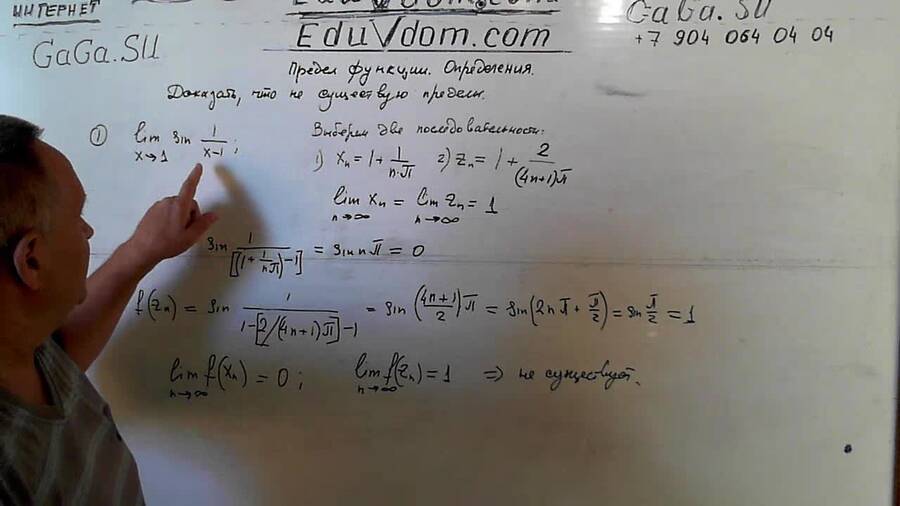 ИНТЕРНЕТ
GaGa.SU
EduVdom.com
GaGa.SU
+7 904 064 04 04
Предел функции. Определения.
Доказать, что не существую пределы.
① lim x→1 sin 1/(x-1);
Выберем две последовательности:
1) xₙ = 1 + 1/(n·π) 2) zₙ = 1 + 2/((4n+1)π)
lim n→∞ xₙ = lim n→∞ zₙ = 1
sin 1/[(1 + 1/(nπ)) - 1] = sin nπ = 0
f(zₙ) = sin 1/(1-[2/(4n+1)π]-1) = sin((4n+1)/2)π = sin(2nπ + π/2) = sin π/2 = 1
lim n→∞ f(xₙ) = 0; lim n→∞ f(zₙ) = 1 ⇒ не существует.